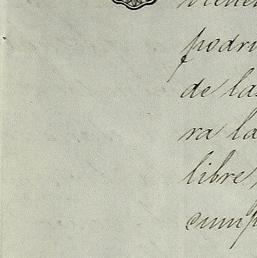 podri
de la
ra la
libre,
cump